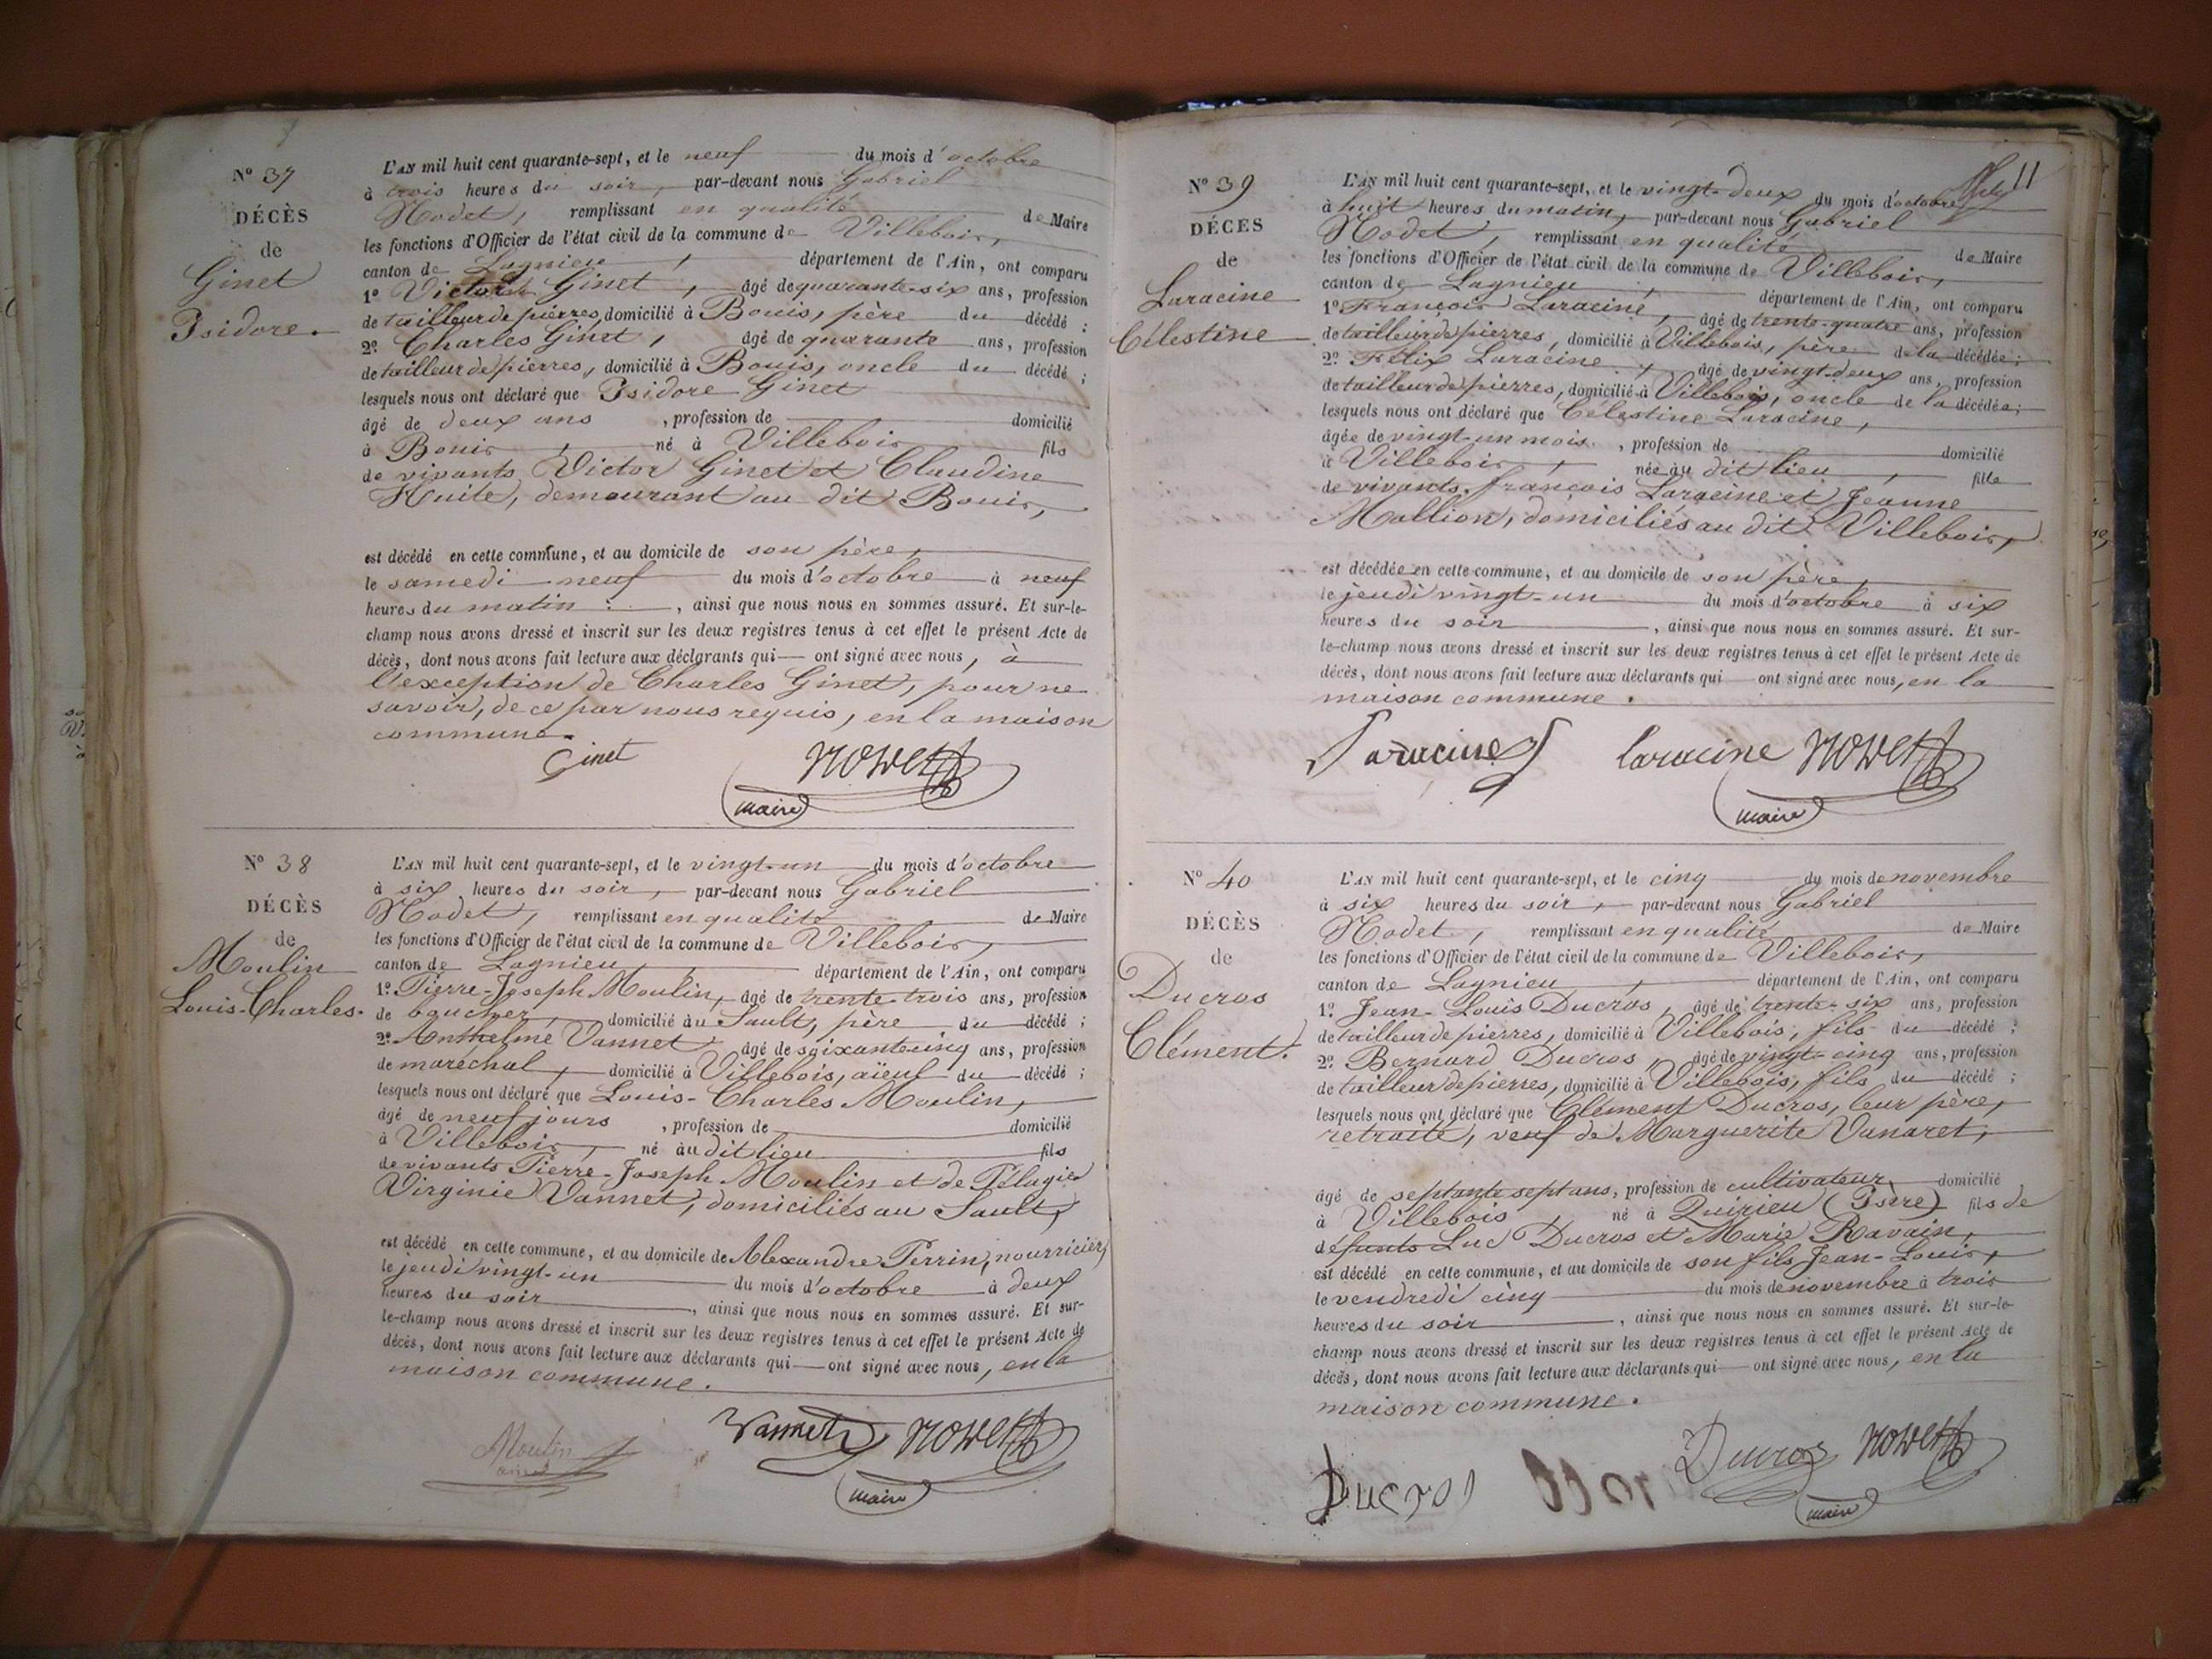 N° 37
DÉCÈS
de
Ginet
Isidore.
L'AN mil huit cent quarante-sept, et le neuf du mois d'octobre
à trois heures du soir, par-devant nous Gabriel
Nodet, remplissant en qualité de Maire
les fonctions d'Officier de l'état civil de la commune de Villebois,
canton de Lagnieu, département de l'Ain, ont comparu
1° Victor Ginet, âgé de quarante-six ans, profession
de tailleur de pierres, domicilié à Bouis, père du décédé ;
2° Charles Ginet, âgé de quarante ans, profession
de tailleur de pierres, domicilié à Bouis, oncle du décédé ;
lesquels nous ont déclaré que Isidore Ginet
âgé de deux ans, profession de domicilié
à Bouis, né à Villebois fils
de vivants Victor Ginet et Claudine
Huite, demeurant au dit Bouis,
est décédé en cette commune, et au domicile de son père,
le samedi neuf du mois d'octobre à neuf
heures du matin, ainsi que nous nous en sommes assuré. Et sur-le-
champ nous avons dressé et inscrit sur les deux registres tenus à cet effet le présent Acte de
décès, dont nous avons fait lecture aux déclarants qui ont signé avec nous, à
l'exception de Charles Ginet, pour ne
savoir, de ce par nous requis, en la maison
commune.
Ginet Nodet
maire
N° 38
DÉCÈS
de
Moulin
Louis-Charles.
L'AN mil huit cent quarante-sept, et le vingt-un du mois d'octobre
à six heures du soir, par-devant nous Gabriel
Nodet, remplissant en qualité de Maire
les fonctions d'Officier de l'état civil de la commune de Villebois,
canton de Lagnieu, département de l'Ain, ont comparu
1° Pierre-Joseph Moulin, âgé de trente-trois ans, profession
de boucher, domicilié au Sault, père du décédé ;
2° Anthelme Vannet âgé de soixante-cinq ans, profession
de maréchal, domicilié à Villebois, aïeul du décédé ;
lesquels nous ont déclaré que Louis-Charles Moulin,
âgé de neuf jours, profession de domicilié
à Villebois, né au dit lieu fils
de vivants Pierre-Joseph Moulin et de Pélagie
Virginie Vannet, domiciliés au Sault,
est décédé en cette commune, et au domicile de Alexandre Perrin, nourricier,
le jeudi vingt-un du mois d'octobre à deux
heures du soir, ainsi que nous nous en sommes assuré. Et sur-
le-champ nous avons dressé et inscrit sur les deux registres tenus à cet effet le présent Acte de
décès, dont nous avons fait lecture aux déclarants qui ont signé avec nous, en la
maison commune.
Moulin Vannet Nodet
maire
11
N° 39
DÉCÈS
de
Laracine
Célestine
L'AN mil huit cent quarante-sept, et le vingt-deux du mois d'octobre
à huit heures du matin, par-devant nous Gabriel
Nodet, remplissant en qualité de Maire
les fonctions d'Officier de l'état civil de la commune de Villebois,
canton de Lagnieu, département de l'Ain, ont comparu
1° François Laracine, âgé de trente-quatre ans, profession
de tailleur de pierres, domicilié à Villebois, père de la décédée ;
2° Félix Laracine, âgé de vingt-deux ans, profession
de tailleur de pierres, domicilié à Villebois, oncle de la décédée ;
lesquels nous ont déclaré que Célestine Laracine,
âgée de vingt-un mois, profession de domicilié
à Villebois, née au dit lieu, fille
de vivants François Laracine et Jeanne
Mallion, domiciliés au dit Villebois,
est décédée en cette commune, et au domicile de son père,
le jeudi vingt-un du mois d'octobre à six
heures du soir, ainsi que nous nous en sommes assuré. Et sur-
le-champ nous avons dressé et inscrit sur les deux registres tenus à cet effet le présent Acte de
décès, dont nous avons fait lecture aux déclarants qui ont signé avec nous, en la
maison commune.
Laracine laracine Nodet
maire
N° 40
DÉCÈS
de
Ducros
Clément.
L'AN mil huit cent quarante-sept, et le cinq du mois de novembre
à six heures du soir, par-devant nous Gabriel
Nodet, remplissant en qualité de Maire
les fonctions d'Officier de l'état civil de la commune de Villebois,
canton de Lagnieu, département de l'Ain, ont comparu
1° Jean-Louis Ducros, âgé de trente-six ans, profession
de tailleur de pierres, domicilié à Villebois, fils du décédé ;
2° Bernard Ducros, âgé de vingt-cinq ans, profession
de tailleur de pierres, domicilié à Villebois, fils du décédé ;
lesquels nous ont déclaré que Clément Ducros, leur père,
retraité, veuf de Marguerite Vanaret,
âgé de septante sept ans, profession de cultivateur, domicilié
à Villebois, né à Quirieu (Isère) fils de
défunts Luc Ducros et Marie Ravain,
est décédé en cette commune, et au domicile de son fils Jean-Louis,
le vendredi cinq du mois de novembre à trois
heures du soir, ainsi que nous nous en sommes assuré. Et sur-le-
champ nous avons dressé et inscrit sur les deux registres tenus à cet effet le présent Acte de
décès, dont nous avons fait lecture aux déclarants qui ont signé avec nous, en la
maison commune.
Ducros Ducros Nodet
maire